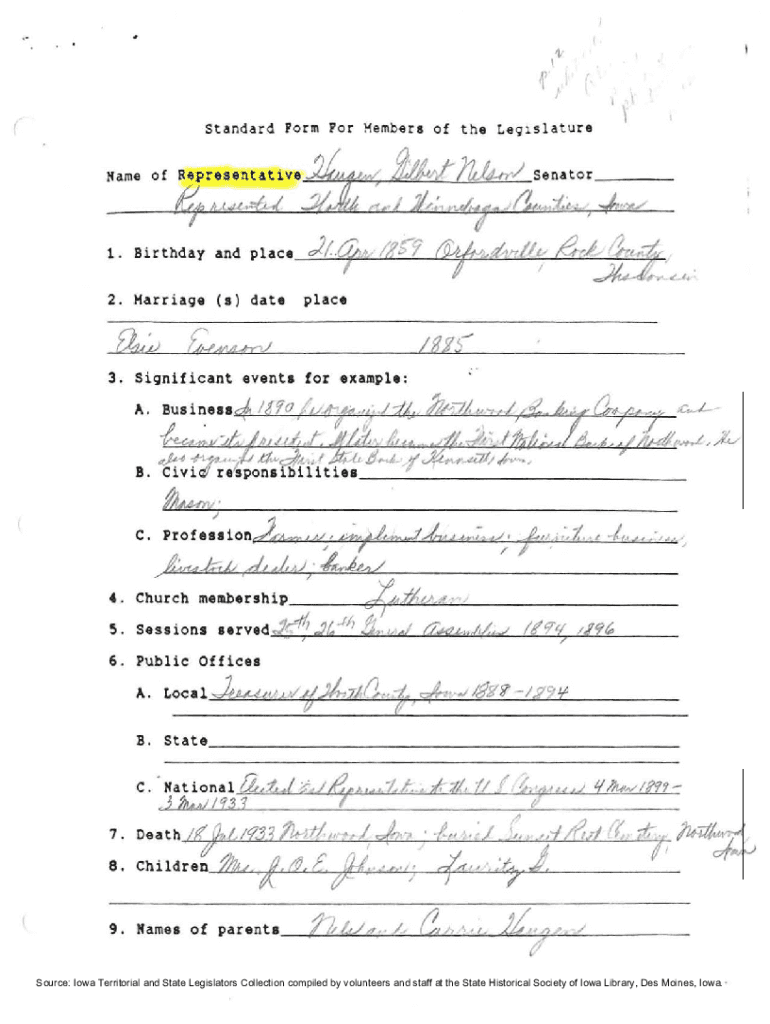 p. 12
Standard Form For Members of the Legislature
Name of Representative Haugen, Gilbert Nelson Senator
Represented Worth and Winnebago Counties, Iowa
1. Birthday and place 21 Apr 1859 Orfordville, Rock County,
Wisconsin
2. Marriage (s) date place
Elsie Evenson 1885
3. Significant events for example:
A. Business In 1890 he organized the Northwood Banking Company and
became its president. It later became the First National Bank of Northwood. He
also organized the First State Bank of Kensett, Iowa.
B. Civic responsibilities
Mason;
C. Profession Farmer; implement business; furniture business;
livestock dealer; banker
4. Church membership Lutheran
5. Sessions served 25th, 26th General Assemblies 1894, 1896
6. Public Offices
A. Local Treasurer of Worth County, Iowa 1888-1894
B. State
C. National Elected as Representative to the U S Congress 4 Mar 1899-
3 Mar 1933
7. Death 18 Jul 1933 Northwood, Iowa; buried Sunset Rest Cemetery, Northwood,
Iowa
8. Children Mrs. J. O. E. Johnson; Lauritz G.
9. Names of parents Nels and Carrie Haugen
Source: Iowa Territorial and State Legislators Collection compiled by volunteers and staff at the State Historical Society of Iowa Library, Des Moines, Iowa.